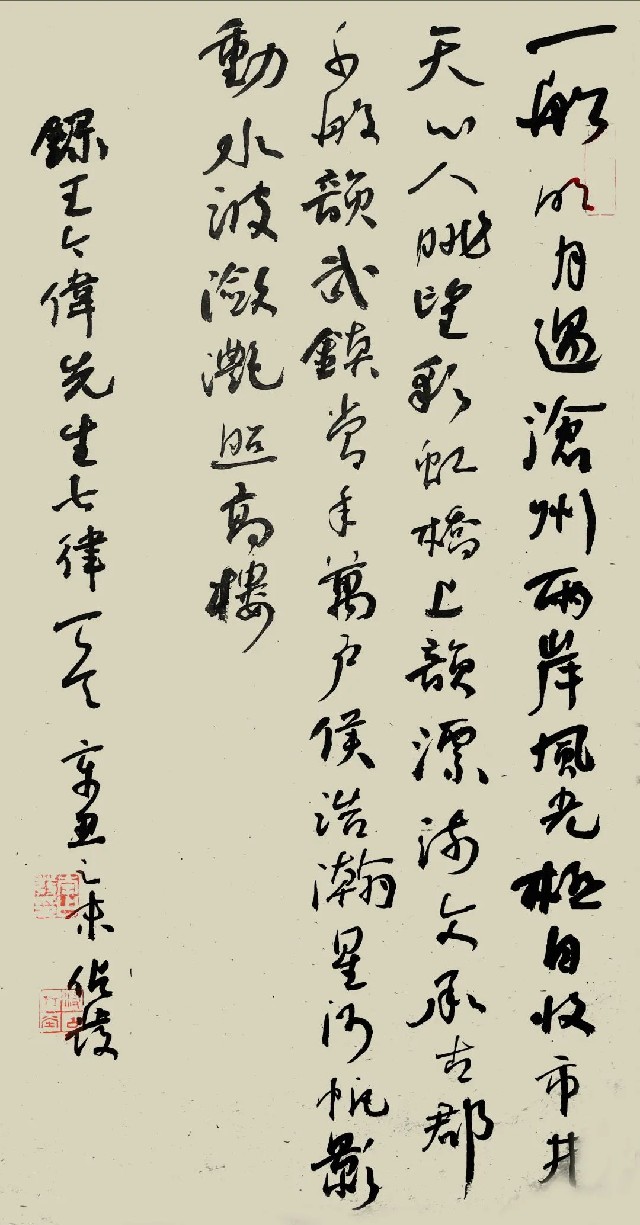 一船明月過滄州兩岸風光極目收市井
天心人眺望彩虹橋上韻漂流文承古郡
千般韻武鎮當年萬戶侯浩瀚星河帆影
動水波瀲灧照高樓
錄王偉先生七律一首辛丑之末